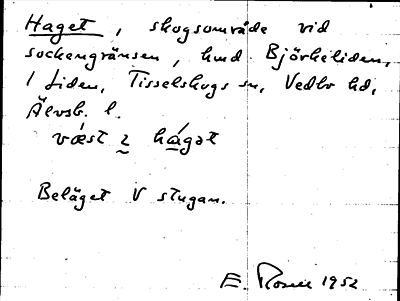 Haget, skogsområde vid
sockengränsen, hmd. Björkeliden,
1 Liden, Tisselskogs sn, Vedbo hd,
Älvsb. l.
væst i hágət
Beläget V stugan.
E. Rosell 1952